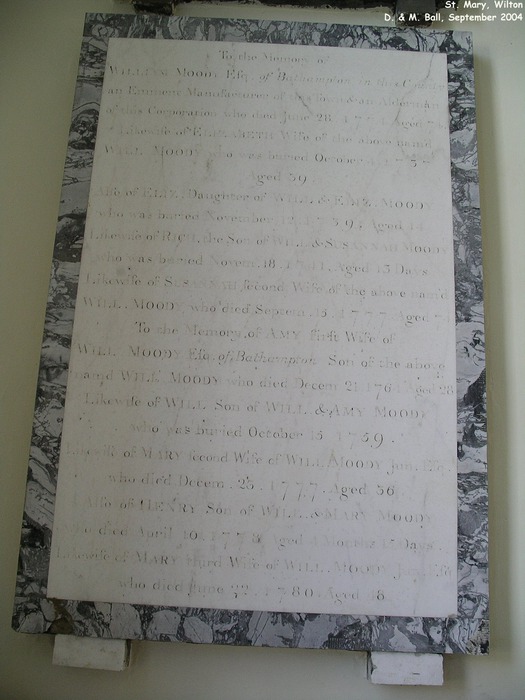 St. Mary, Wilton
D. & M. Ball, September 2004
To the Memory of
WILLIAM MOODY Esq. of Bathampton in this County
an Eminent Manufacturer of this Town & an Alderman
of this Corporation who died June 28. 1774 Aged
Likewise of ELIZABETH Wife of the above nam'd
WILL. MOODY who was buried October
Aged 59
Also of ELIZ. Daughter of WILL. & ELIZ. MOODY
who was buried November 12. 1759. Aged 14
Likewise of RICH. the Son of WILL. & SUSANNAH MOODY
who was buried Novem. 18. Aged 13 Days
Likewise of SUSANNAH second Wife of the above nam'd
WILL. MOODY, who died Septem. 15. 1777 Aged
To the Memory of AMY first Wife of
WILL. MOODY Esq. of Bathampton Son of the above
named WILL. MOODY who died Decem. 21. Aged 28
Likewise of WILL. Son of WILL. & AMY MOODY
who was buried October 15 1759.
Likewise of MARY second Wife of WILL. MOODY Jun. Esq.
who died Decem. 23. 1777. Aged 36
Also of HENRY Son of WILL. & MARY MOODY
who died April 10. 1778 Aged Months 15 Days.
Likewise of MARY third Wife of WILL. MOODY Jun. Esq.
who died June 22. 1780. Aged 48.